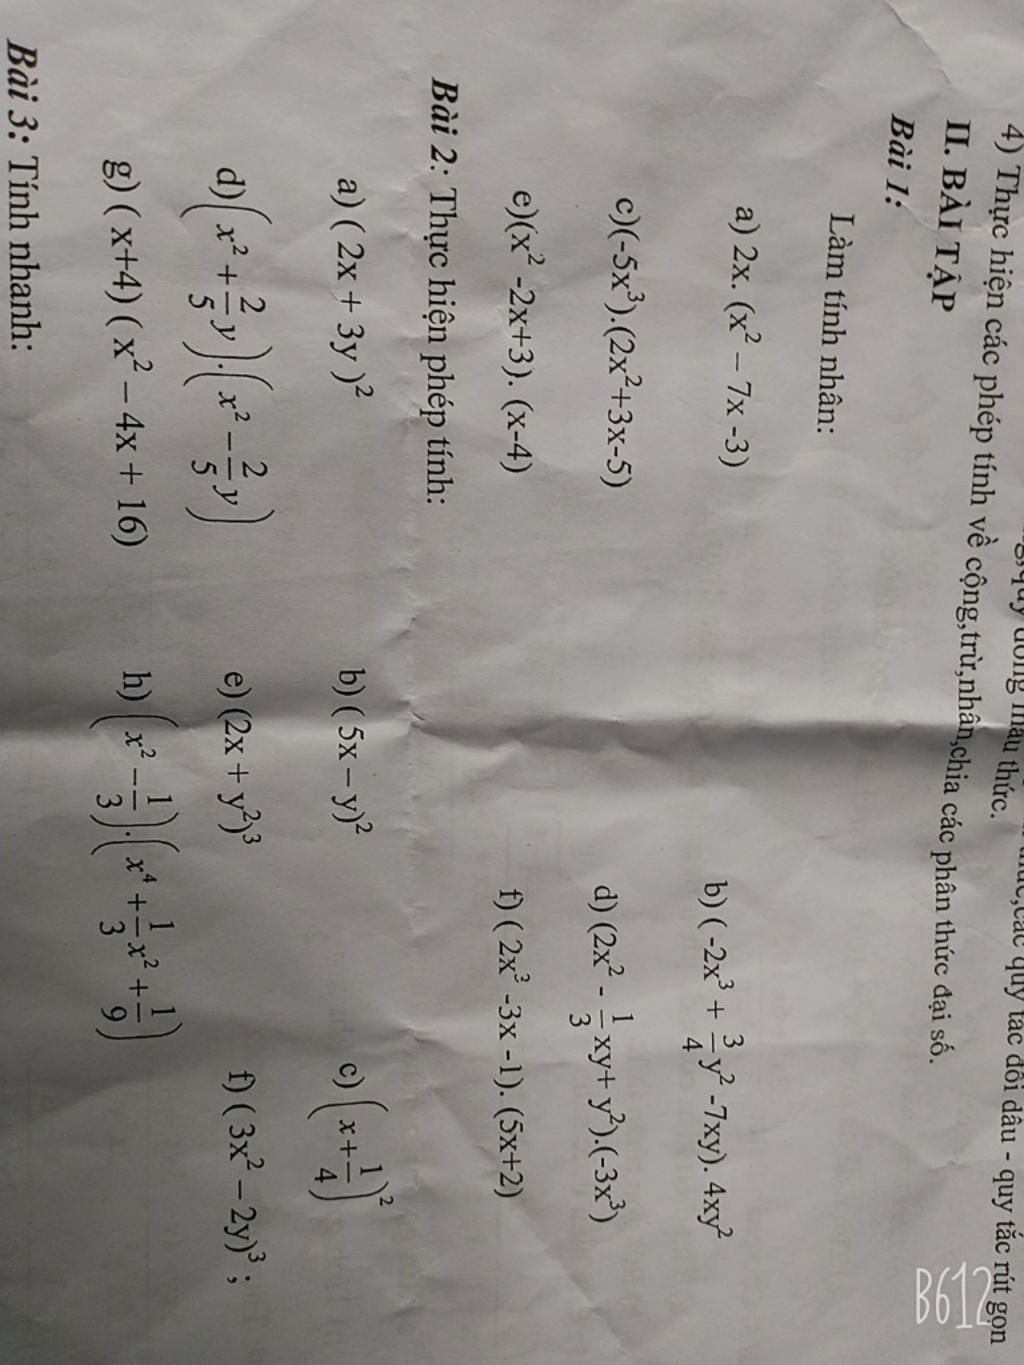 quy đồng mẫu thức.
4) Thực hiện các phép tính về cộng,trừ,nhân,chia các phân thức đại số.
II. BÀI TẬP
Bài 1:
Làm tính nhân:
a) 2x. (x² – 7x -3) b) ( -2x³ + 3/4 y² -7xy). 4xy²
c)(-5x³).(2x²+3x-5) d) (2x² - 1/3 xy+ y²).(-3x³)
e)(x² -2x+3). (x-4) f) ( 2x³ -3x -1). (5x+2)
Bài 2: Thực hiện phép tính:
a) ( 2x + 3y )² b) ( 5x – y)² c) (x + 1/4)²
d) (x² + 2/5 y).(x² – 2/5 y) e) (2x + y²)³ f) ( 3x² – 2y)³ ;
g) ( x+4) ( x² – 4x + 16) h) (x² – 1/3).(x⁴ + 1/3 x² + 1/9)
Bài 3: Tính nhanh:
B612